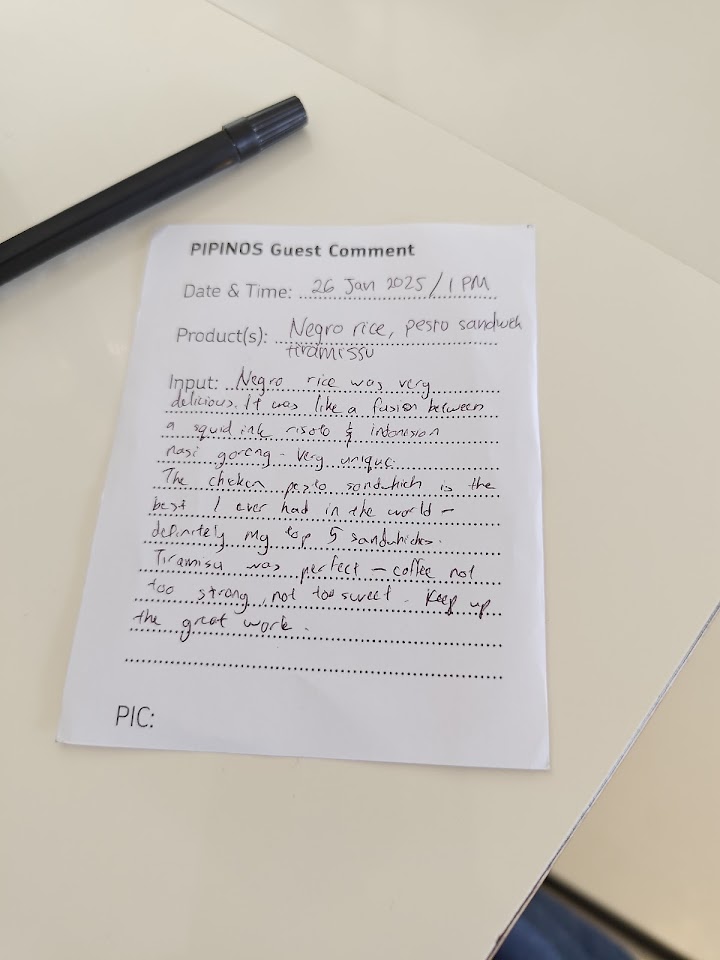 PIPINOS Guest Comment
Date & Time: 26 Jan 2025 / 1 PM
Product(s): Negro rice, pesto sandwich
tiramissu
Input: Negro rice was very
delicious. It was like a fusion between
a squid ink risoto & indonesian
nasi goreng - Very unique.
The chicken pesto sandwhich is the
best I ever had in the world -
definitely my top 5 sandwhiches.
Tiramisu was perfect - coffee not
too strong, not too sweet. Keep up
the great work.
PIC: